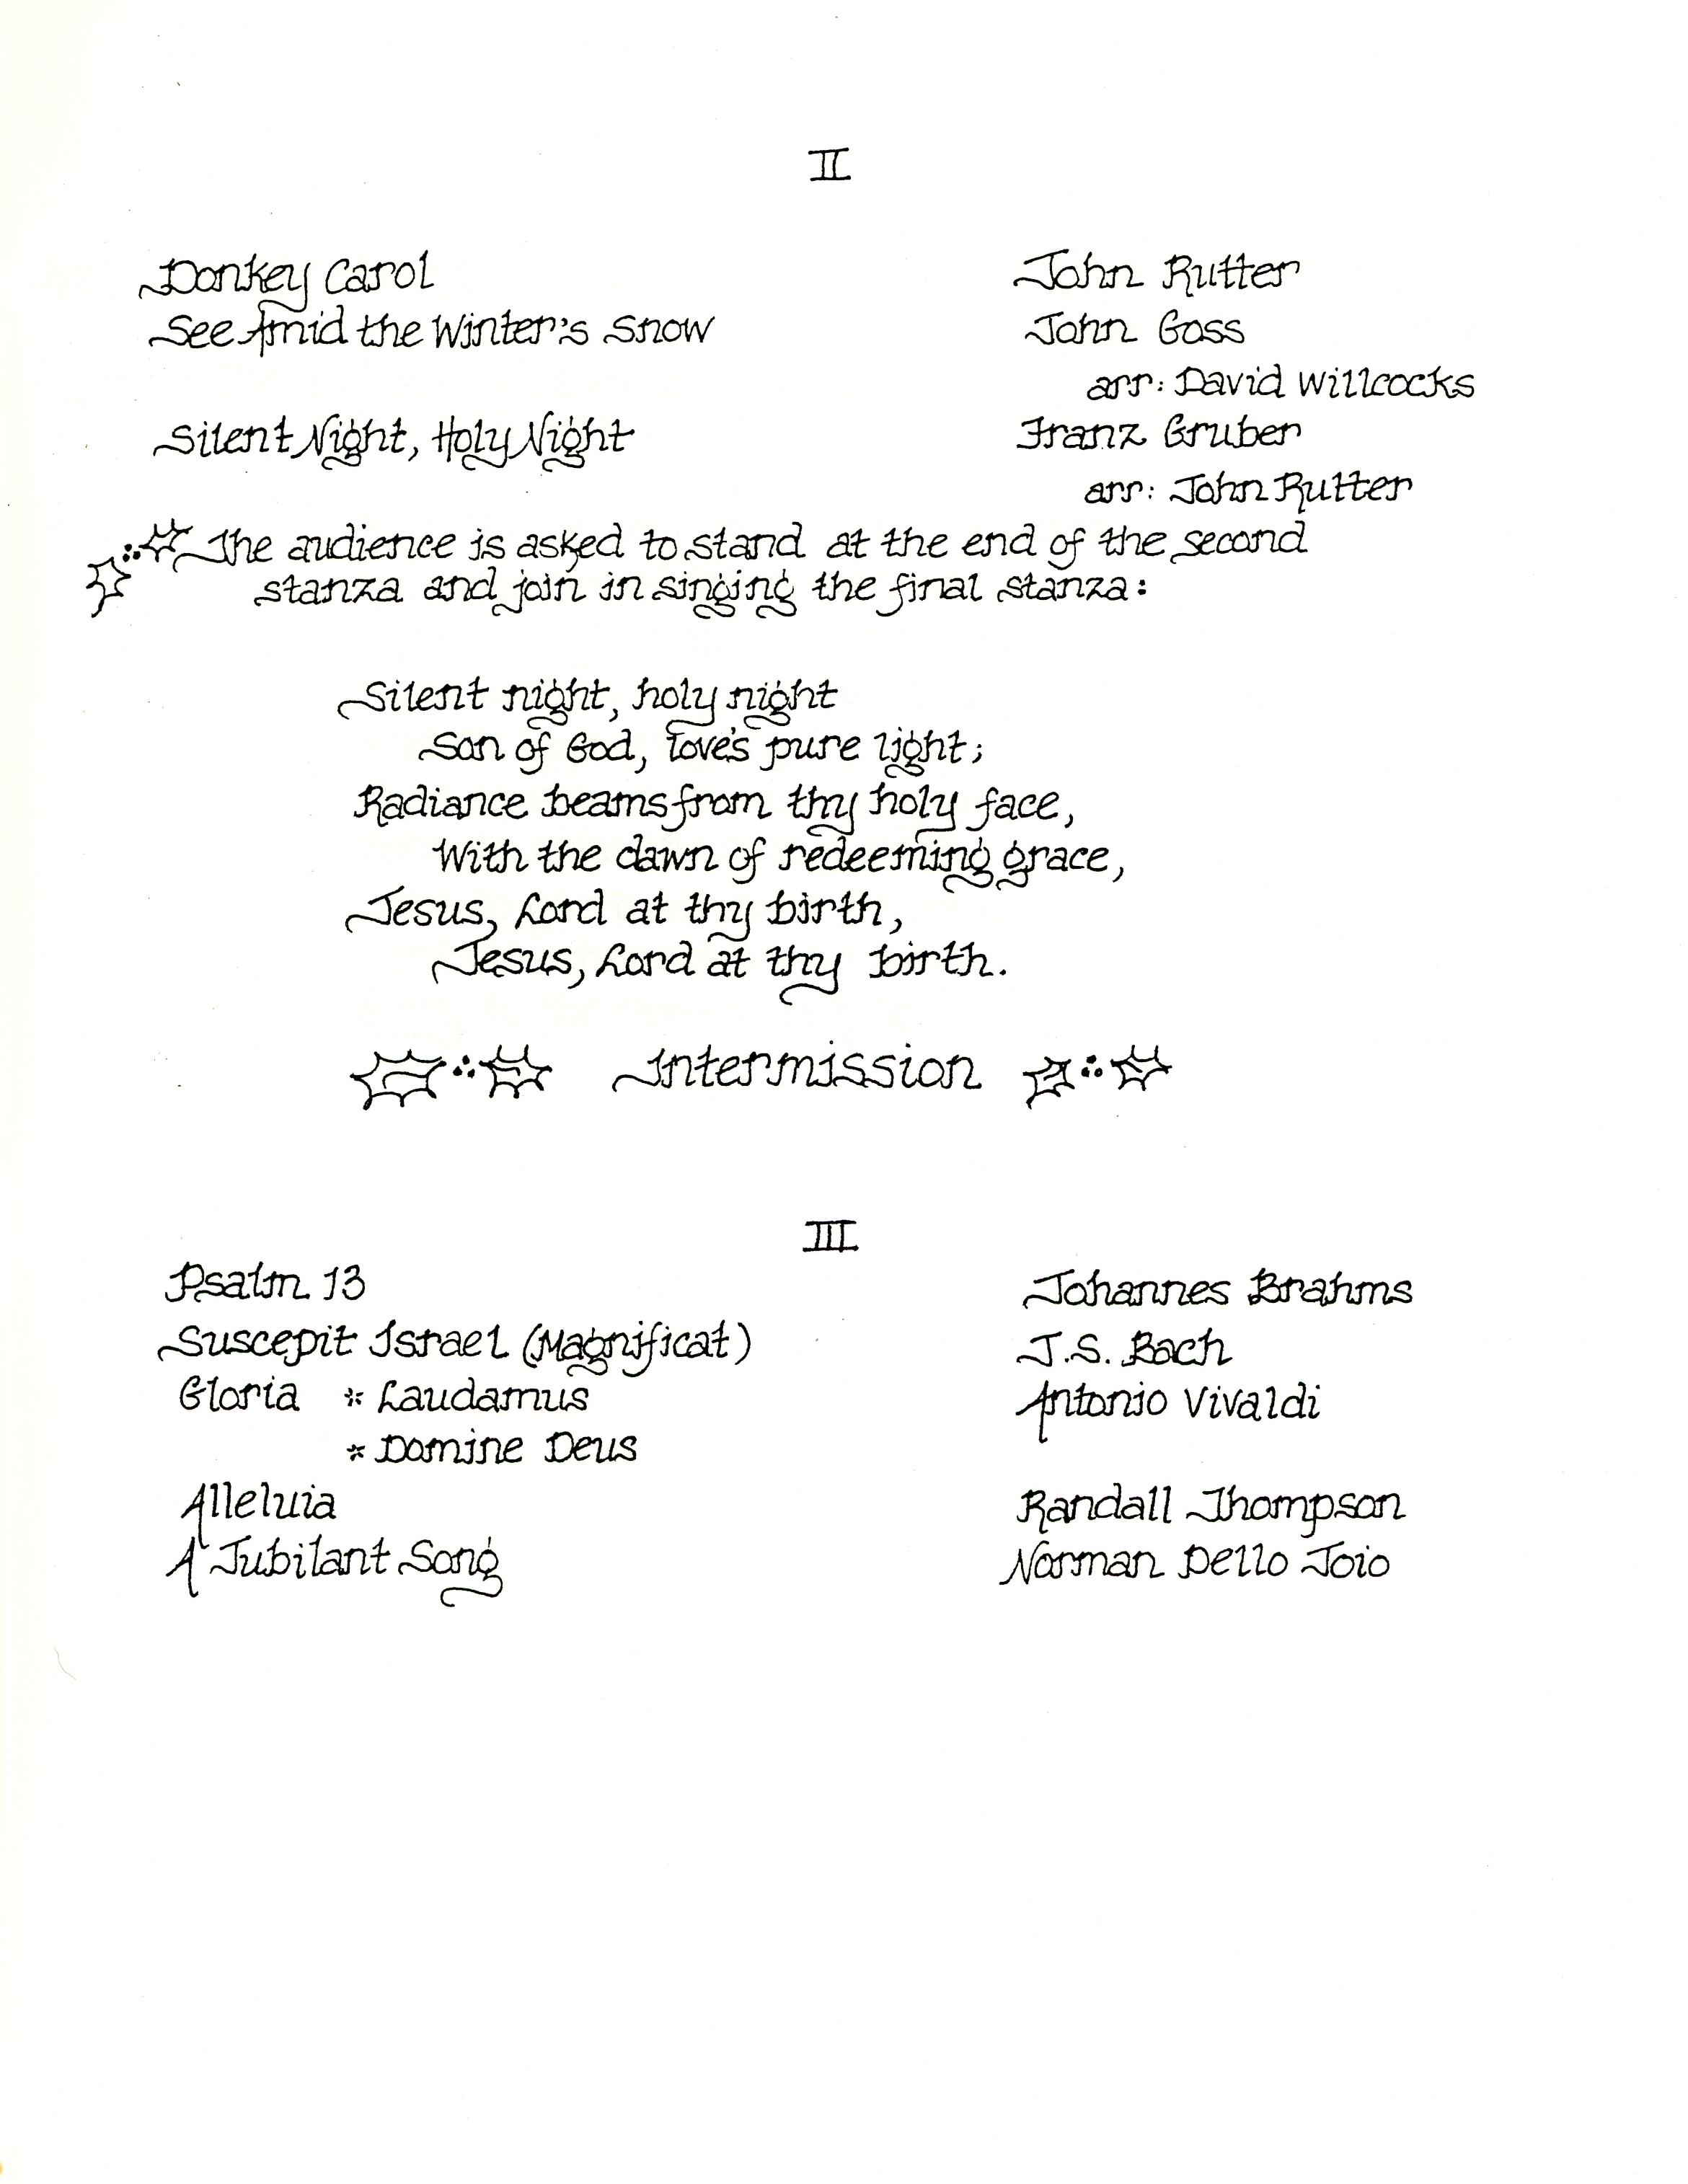 II
Donkey Carol John Rutter
See Amid the Winter's Snow John Goss
arr: David Willcocks
Silent Night, Holy Night Franz Gruber
arr: John Rutter
The audience is asked to stand at the end of the second
stanza and join in singing the final stanza:
Silent night, holy night
Son of God, love's pure light;
Radiance beams from thy holy face,
With the dawn of redeeming grace,
Jesus, Lord at thy birth,
Jesus, Lord at thy birth.
Intermission
III
Psalm 13 Johannes Brahms
Suscepit Israel (Magnificat) J.S. Bach
Gloria * Laudamus Antonio Vivaldi
* Domine Deus
Alleluia Randall Thompson
A Jubilant Song Norman Dello Joio